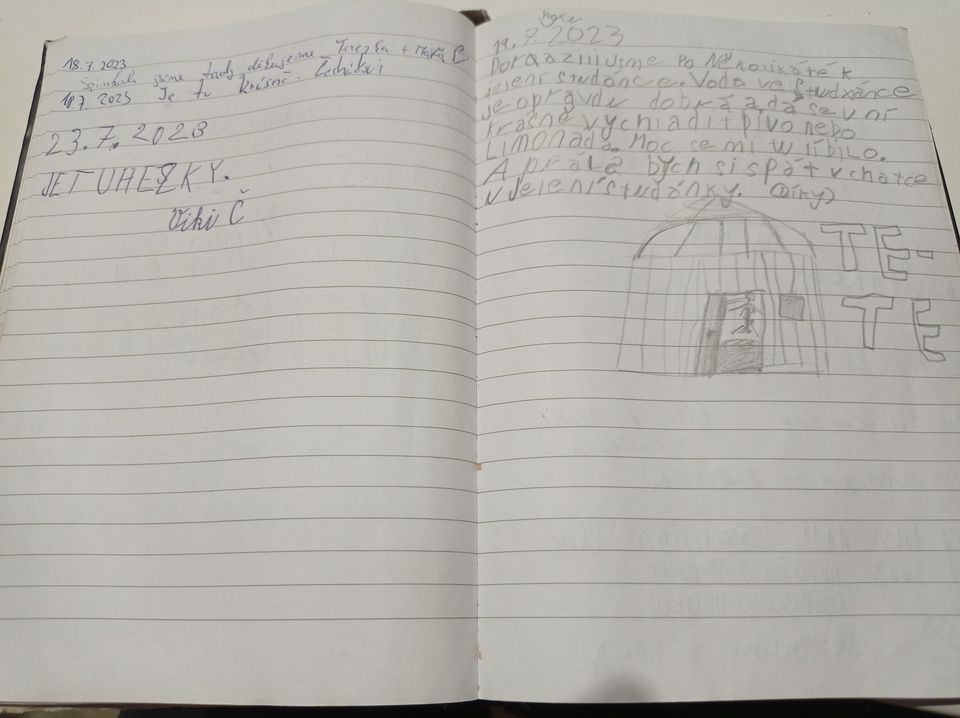 18.7.2023
Spinkali jsme tady děkujeme Terezka +
19.7 2023 Je tu krásně.
23.7.2023
JE TU HEZKY.
Viki Č
19.7 2023
Dorazilijsme Po Několikáté k
jelení studánce. Voda ve studxánce
je opravdu dobrá a dá se v ní
krásně vychladit pivo nebo
Limonáda. Moc se mi w líbilo.
A přála bych si spát v chatce
v Jelení studánky. (Díky)
TE-
TE